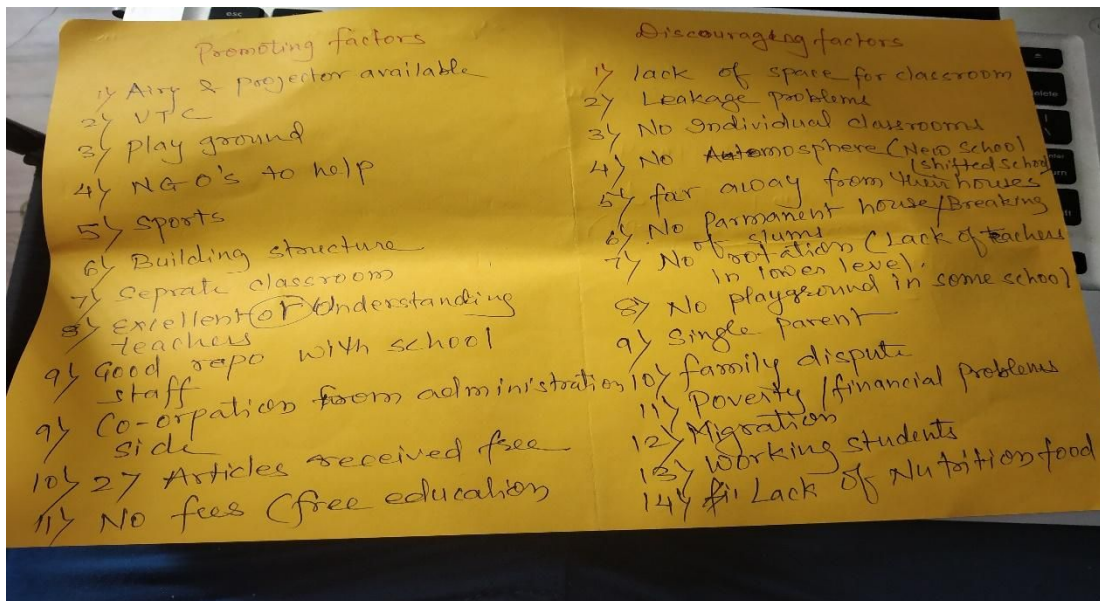 Promoting factors
1) Airy & projector available
2) VTC
3) Play ground
4) NGO's to help
5) Sports
6) Building structure
7) Seprate classroom
8) Excellent or Understanding
teachers
9) Good rapo with school
staff
9) Co-orpation from administration
side
10) 27 Articles received free
11) No fees (free education
Discouraging factors
1) lack of space for classroom
2) Leakage problems
3) No Individual classrooms
4) No mosphere (New School
(shifted school
5) far away from their houses
6) No Parmanent house/Breaking
of slums
7) No rotation (Lack of teachers
in lower level.
8) No playground in some school
9) Single parent
10) family dispute
11) Poverty/financial Problems
12) Migration
13) Working students
14) Lack of Nutrition food
esc